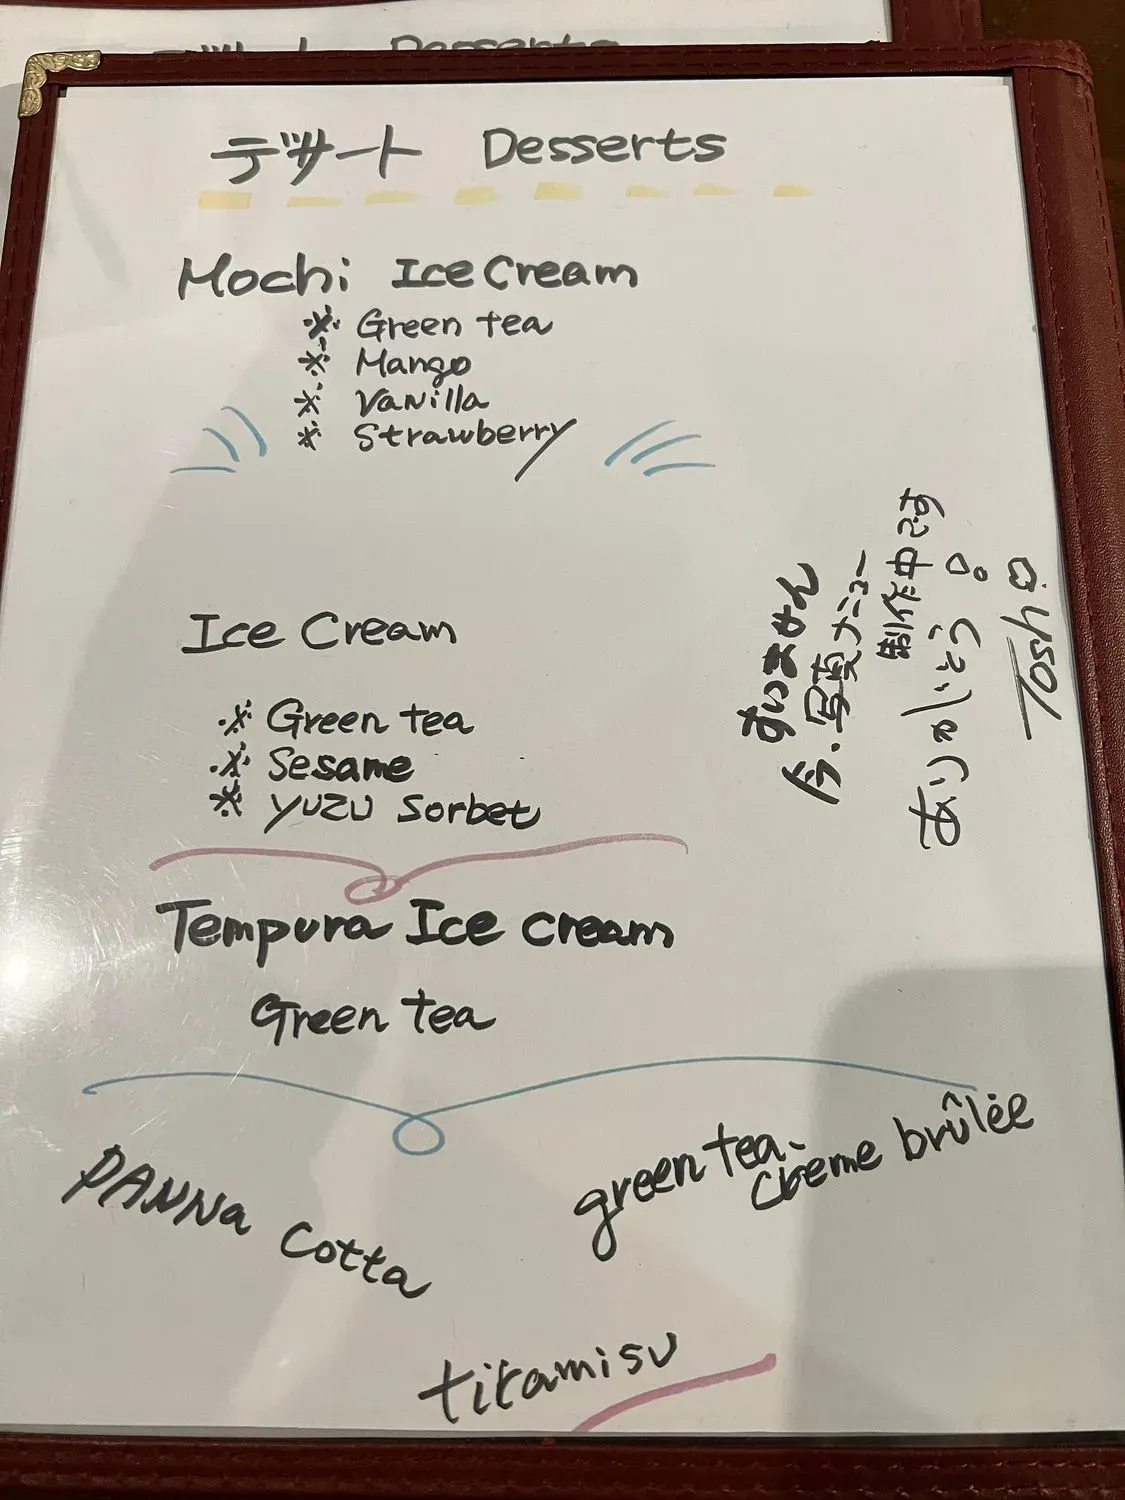 デザート Desserts
Mochi Ice Cream
※ Green tea
※ Mango
※ Vanilla
※ Strawberry
Ice Cream
※ Green tea
※ Sesame
※ YUZU Sorbet
Tempura Ice Cream
Green tea
PANNa Cotta
green tea
creme brûlée
titamisu
すいません
今、写真メニュー
制作中です
ありがとう。